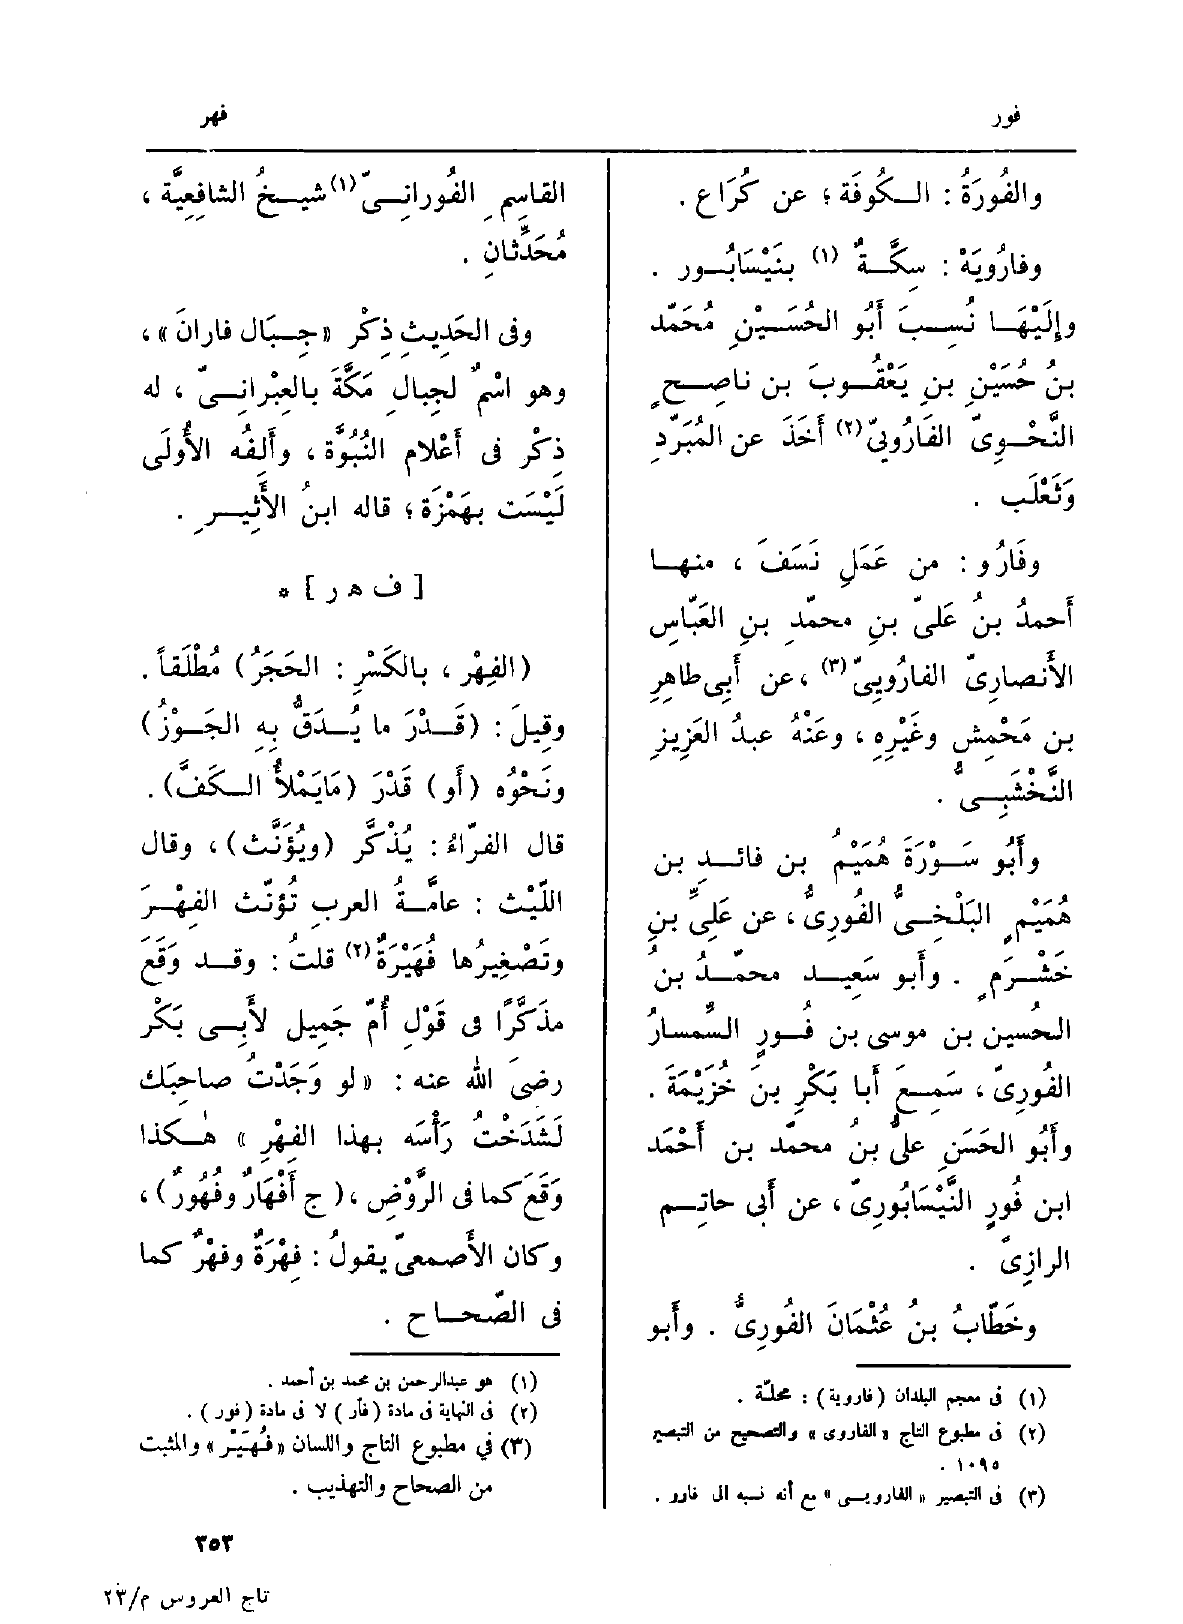 فور
فهر
والفُورَةُ : الـكُوفَة ؛ عن كُرَاع .
وفارُويَهْ : سِكَّـةٌ (١) بنَيْسَابُـور .
وإِلَيْهَـا نُسِـبَ أَبُو الحُسَيْـنِ مُحَمّد
بنُ حُسَيْنِ بنِ يَعْقُـوبَ بن ناصِـحٍ
النَّحْـوِىّ الفَارُوِيّ(٢) أَخَذَ عن المُبَرّدِ
وَثَعْلَب .
وفَارُو : من عَمَلِ نَسَفَ ، منهـا
أَحمدُ بنُ عَلىّ بنِ محمّدِ بنِ العَبّاسِ
الأَنصارِىّ الفارُويِىّ(٣) ، عن أَبِى طاهِرِ
بن مَحْمِش وغَيْرِهِ ، وعَنْهُ عبدُ العَزِيزِ
النَّخْشَبِـىُّ .
وأَبُو سَـوْرَةَ هُمَيْمُ بن فائـدِ بن
هُمَيْمٍ البَلْخِـىُّ الفُورِىُّ ، عن عَلِىِّ بنِ
خَشْـرَمٍ . وأَبو سَعِيـد محمّـدُ بنُ
الحُسينِ بن موسى بن فُـورٍ السِّمسارُ
الفُورِىّ ، سَمِـعَ أَبا بَكْرِ بنَ خُزَيْمَةَ .
وأَبُو الحَسَنِ علىُّ بنُ محمّد بن أَحْمَد
ابن فُورٍ النَّيْسَابُورِىّ ، عن أَبى حاتِـم
الرازِىّ .
وخَطّابُ بنُ عُثْمَانَ الفُورِىُّ . وأَبو
(١) فى معجم البلدان (فاروية) : محلّـة .
(٢) فى مطبوع التاج «الفاروى» والتصحيح من التبصير
١٠٩٥ .
(٣) فى التبصير «الفارويـى» مع أنه نسبه الى فارو .
القاسِمِ الفُورانِـىّ(١) شيـخُ الشافِعِيَّة ،
مُحَدِّثانِ .
وفى الحَدِيثِ ذِكْر «جِـبَال فارانَ» ،
وهو اسْمٌ لجِبالِ مَكَّةَ بالعِبْرانِـىّ ، له
ذِكْر فى أَعْلام النُّبُوَّة ، وأَلِفُه الأُولَى
لَيْسَت بهَمْزَة ؛ قاله ابنُ الأَثِيـر .
[ ف هـ ر ] *
(الفِهْر ، بالكَسْرِ : الحَجَرُ) مُطْلَقاً .
وقِيلَ : (قَـدْرَ ما يُـدَقُّ بِهِ الجَـوْزُ)
ونَحْوُه (أَو) قَدْرَ (مَايَمْلأُ الـكَفَّ) .
قال الفرّاءُ : يُذَكَّر (ويُؤَنَّث) ، وقال
اللّيْث : عامَّـةُ العربِ تُؤنّث الفِهْـرَ
وتَصْغِيرُها فُهَيْرَةٌ(٢) قلتُ : وقـد وَقَعَ
مذَكَّرًا فى قَوْلِ أُمّ جَمِيل لأَبِـى بَكْر
رضىَ الله عنه : «لو وَجَدْتُ صاحِبَك
لَشَدَخْتُ رَأْسَه بهذا الفِهْرِ» هٰـكذا
وَقَعَ كما فى الرَّوْضِ ، (ج أَفْهَارٌ وفُهُورٌ) ،
وكان الأَصمعىّ يقولُ : فِهْرَةٌ وفِهْرٌ كما
فى الصّحـاح .
(١) هو عبدالرحمن بن محمد بن أحمد .
(٢) فى النهاية فى مادة (فأر) لا فى مادة (فور) .
(٣) في مطبوع التاج واللسان «فُهَيْر» والمثبت
من الصحاح والتهذيب .
٣٥٣
تاج العروس م/٢٣